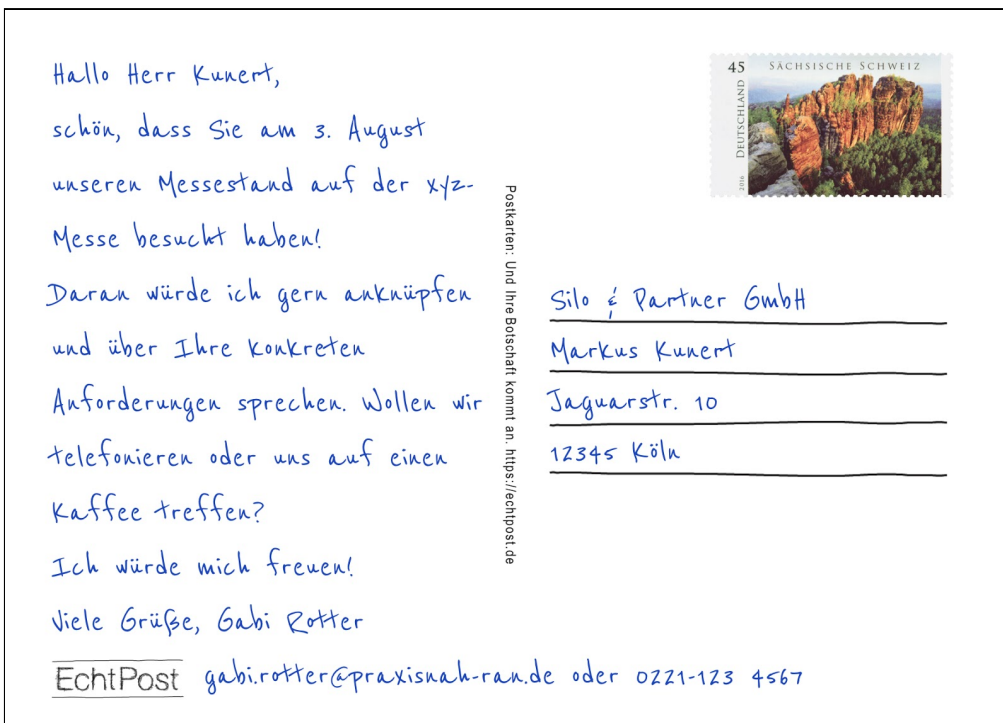 Hallo Herr Kunert,
schön, dass Sie am 3. August
unseren Messestand auf der xyz-
Messe besucht haben!
Daran würde ich gern anknüpfen
und über Ihre konkreten
Anforderungen sprechen. Wollen wir
telefonieren oder uns auf einen
Kaffee treffen?
Ich würde mich freuen!
Viele Grüße, Gabi Rotter
EchtPost gabi.rotter@praxisnah-ran.de oder 0221-123 4567
Postkarten: Und Ihre Botschaft kommt an. https://echtpost.de
45 SÄCHSISCHE SCHWEIZ
DEUTSCHLAND
2016
Silo & Partner GmbH
Markus Kunert
Jaguarstr. 10
12345 Köln